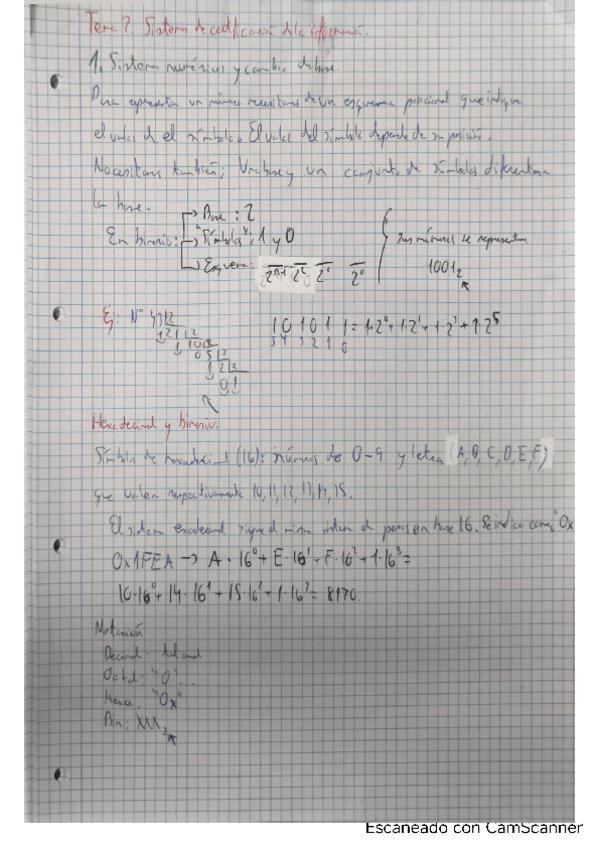 Tema 2. Sistema de codificación de la información.
1. Sistema numéricos y cambio de base
Para representa un número necesitamos de un esquema posicional que indique
el valor de el símbolo. El valor del símbolo depende de su posición.
Necesitamos también, Una base y un conjunto de símbolos diferentes
la base.
En binario:
→ Base: 2
→ "Símbolo": 1 y 0
→ Esquema: 2ⁿ⁻¹ ... 2² 2¹ 2⁰
sus números se representa
1001₂
Ej: Nº 43 |2
1 0 1 0 1 1 = 1·2⁰ + 1·2¹ + 1·2³ + 1·2⁵
5 4 3 2 1 0
Hexadecimal y binario.
(16): números de 0-9 y letra (A, B, C, D, E, F)
que valen respectivamente 10, 11, 12, 13, 14, 15.
El sistema sigue el mismo en base 16. Se indica como "0x
0x1FEA → A · 16⁰ + E · 16¹ + F · 16² + 1 · 16³ =
10·16⁰ + 14·16¹ + 15·16² + 1·16³ = 8170.
Notación
Decimal:
Octal: "0"...
Hexa: "0x"
Bin: XXX₂
Escaneado con CamScanner